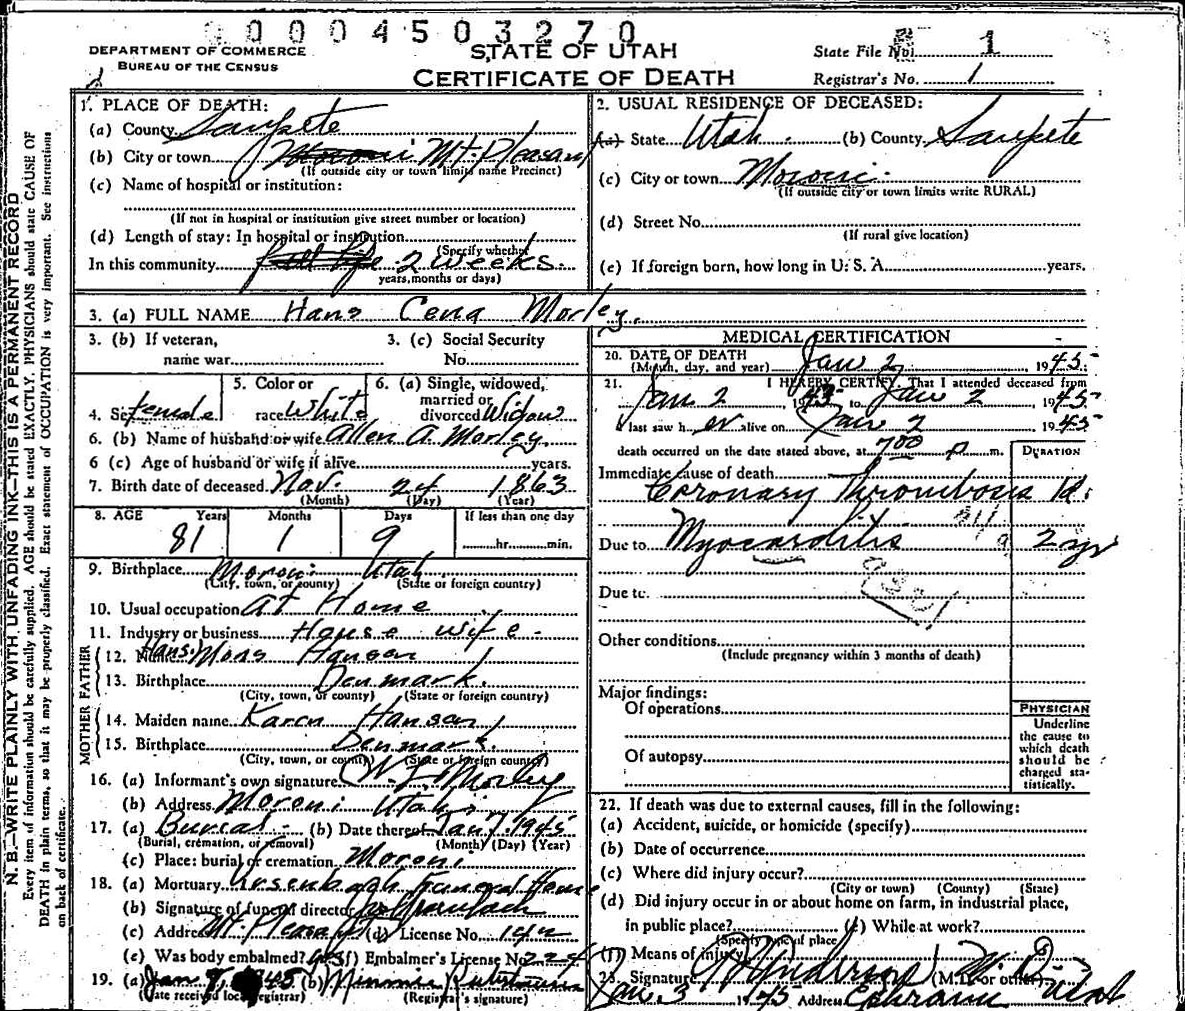 0 0 0 4 5 0 3 2 7 0
DEPARTMENT OF COMMERCE
BUREAU OF THE CENSUS
STATE OF UTAH
CERTIFICATE OF DEATH
State File No. 1
Registrar's No. 1
N. B.—WRITE PLAINLY WITH UNFADING INK—THIS IS A PERMANENT RECORD
Every item of information should be carefully supplied. AGE should be stated EXACTLY. PHYSICIANS should state CAUSE OF
DEATH in plain terms, so that it may be properly classified. Exact statement of OCCUPATION is very important. See instructions
on back of certificate.
1. PLACE OF DEATH:
(a) County Sanpete
(b) City or town Moroni Mt. Pleasant
(If outside city or town limits name Precinct)
(c) Name of hospital or institution:
(If not in hospital or institution give street number or location)
(d) Length of stay: In hospital or institution
(Specify whether
In this community 2 weeks.
years, months or days)
2. USUAL RESIDENCE OF DECEASED:
(a) State Utah (b) County Sanpete
(c) City or town Moroni
(If outside city or town limits write RURAL)
(d) Street No.
(If rural give location)
(e) If foreign born, how long in U. S. A. years.
3. (a) FULL NAME Hans Cena Morley.
3. (b) If veteran, name war
3. (c) Social Security No.
4. Sex female
5. Color or race White
6. (a) Single, widowed, married or divorced Widow
6. (b) Name of husband or wife Allen A. Morley.
6 (c) Age of husband or wife if alive years.
7. Birth date of deceased Nov. 24 1863
(Month) (Day) (Year)
8. AGE Years Months Days If less than one day
81 1 9 hr. min.
9. Birthplace Moroni Utah
(City, town, or county) (State or foreign country)
10. Usual occupation At Home
11. Industry or business House wife
FATHER
12. Name Hans Mons Hansen
13. Birthplace Denmark.
(City, town, or county) (State or foreign country)
MOTHER
14. Maiden name Karen Hansen
15. Birthplace Denmark.
(City, town, or county) (State or foreign country)
16. (a) Informant's own signature Morley
(b) Address Moroni Utah
17. (a) Burial (b) Date thereof Jan 7, 1945
(Burial, cremation, or removal) (Month) (Day) (Year)
(c) Place: burial or cremation Moroni
18. (a) Mortuary Ursenbach Funeral Home
(b) Signature of funeral director Ursenbach
(c) Address Mt. Pleasant (d) License No. 142
(e) Was body embalmed? (f) Embalmer's License No.
19. (a) Jan 1945 (b) Minnie
(Date received local registrar) (Registrar's signature)
MEDICAL CERTIFICATION
20. DATE OF DEATH Jan 2 1945
(Month, day, and year)
21. I HEREBY CERTIFY, That I attended deceased from
Jan 2, 1945 to Jan 2 1945
I last saw h er alive on Jan 2 1945
death occurred on the date stated above, at 7 00 p m.
DURATION
Immediate cause of death
Coronary Thrombosis 1 d.
Due to Myocarditis 2 yr
Due to
Other conditions
(Include pregnancy within 3 months of death)
Major findings:
Of operations
Of autopsy
PHYSICIAN
Underline
the cause to
which death
should be
charged sta-
tistically.
22. If death was due to external causes, fill in the following:
(a) Accident, suicide, or homicide (specify)
(b) Date of occurrence
(c) Where did injury occur?
(City or town) (County) (State)
(d) Did injury occur in or about home on farm, in industrial place,
in public place? (e) While at work?
(Specify type of place
(f) Means of injury
23. Signature Anderson (M.D. or other) M. D.
Jan. 3 1945 Address Ephraim Utah